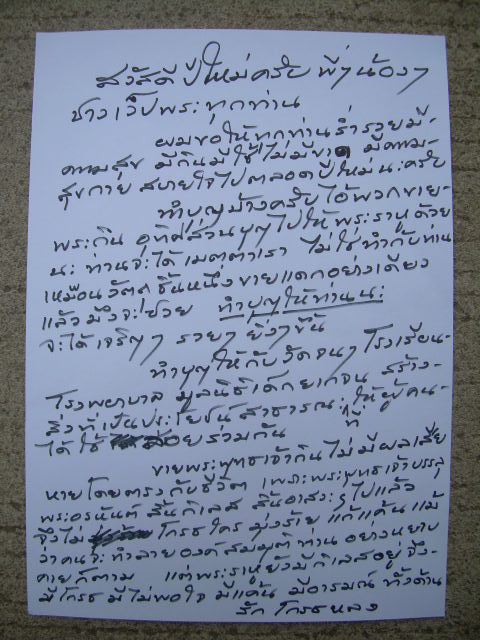 สวัสดีปีใหม่ครับ พี่ๆน้องๆ
ชาวเว็ปพระทุกท่าน
ผมขอให้ทุกท่านร่ำรวยมี-
ความสุข มีกินมีใช้ไม่มีขาด มีความ-
สุขกาย สบายใจไปตลอดปีใหม่นะครับ
ทำบุญบ้างครับไอ้พวกขาย-
พระกิน อุทิศส่วนบุญไปให้พระราหูด้วย
นะ ท่านจะได้เมตตาเรา ไม่ใช่ทำกับท่าน
เหมือนวัตถุชิ้นหนึ่งขายแดกอย่างเดียว
แล้วมึงจะซวย ทำบุญให้ท่านนะ
จะได้เจริญๆ รวยๆ ยิ่งๆขึ้น
ทำบุญให้กับวัดจนๆ โรงเรียน-
โรงพยาบาล มูลนิธิเด็กยากจน สร้าง-
สิ่งที่เป็นประโยชน์สาธารณะ ให้ผู้คน-
ได้ใช้ สอยร่วมกัน
ขายพระพุทธเจ้ากินไม่มีผลเสีย
หายโดยตรงกับชีวิต เพราะพระพุทธเจ้าบรรลุ
พระอรหันต์ สิ้นกิเลส สิ้นอาสวะๆไปแล้ว
จึงไม่ โกรธใคร มุ่งร้าย แก้แค้น แม้
ว่าคนจะทำลายองค์สมมุติท่าน อย่างหยาบ
คายก็ตาม แต่พระราหูยังมีกิเลสอยู่ จึง-
มีโกรธ มีไม่พอใจ มีแค้น มีอารมณ์ ทั้งด้าน
รัก โกรธ หลง